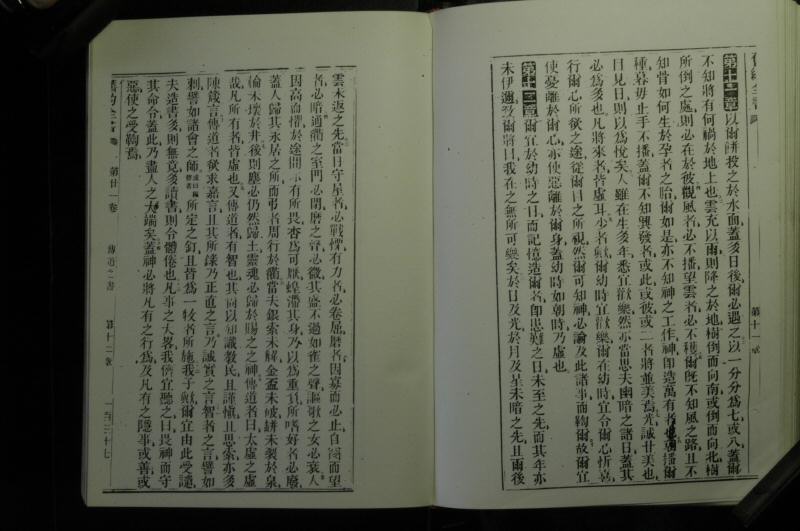 第十一章
第十一章以爾餅投之於水面蓋多日後爾必遇之以一分分為七或八蓋爾
不知將有何禍於地上也雲充以雨則降之於地樹倒而向南或倒而向北樹
所倒之處則必在於彼觀風者必不播望雲者必不穫爾旣不知風之路且不
知骨如何生於孕者之胎爾如是亦不知神之工作神卽造萬有者也朝播爾
種暮毋止手不播蓋爾不知興發者或此或彼或二者將並美焉光誠甘美也
目見日則以為悅矣人雖在生多年悉宜歡樂然亦當思夫幽暗之諸日蓋其
必為多也凡將來者皆虛耳少者歟爾幼時宜歡樂爾在幼時宜令爾心忻喜
行爾心所欲之途從爾目之所視然爾可知神必論及此諸事而鞫爾故爾宜
使憂離於爾心亦使惡離於爾身蓋幼時如朝時乃虛也
第十二章爾宜於幼時之日而記憶造爾者卽患難之日未至之先而其年亦
未伊邇爾將曰我在之無所可樂矣於日及光於月及星未暗之先且雨後
雲未返之先當日守屋者必戰慄有力者必卷屈磨者因寡而必止自而望
者必暗通衢之室門必閉磨之聲必微其盛不過如雀之聲謳歌之女必衰人
因高而懼於途間亦有所畏杏為可厭蝗潘其身乃以為重負所嗜好者必廢
蓋人歸其永居之所而弔者周行於衢當夫銀索未解金盃未破缾未裂於泉
輪未壞於井後則塵必仍然歸土靈魂必歸於賜之之神傳道者曰太虛之虛
哉凡所有者皆虛也又傳道者有智也其尚以知識敎民且謹愼且思索亦多
陳箴言傳道者欲求嘉言且其所錄乃正直之言乃誠實之言智者之言譬如
刺譬如諸會之師所定之釘且皆為一牧者所施我子歟爾宜由此受
夫造書多則無竟多讀書則令體倦也凡事之大畧我儕宜聽之曰畏神而守
其命令蓋此乃盡人之大端矣蓋神必將凡有之行為及凡有之隱事或善或
惡使之受鞫焉
第廿一卷 傳道之書 第十二章